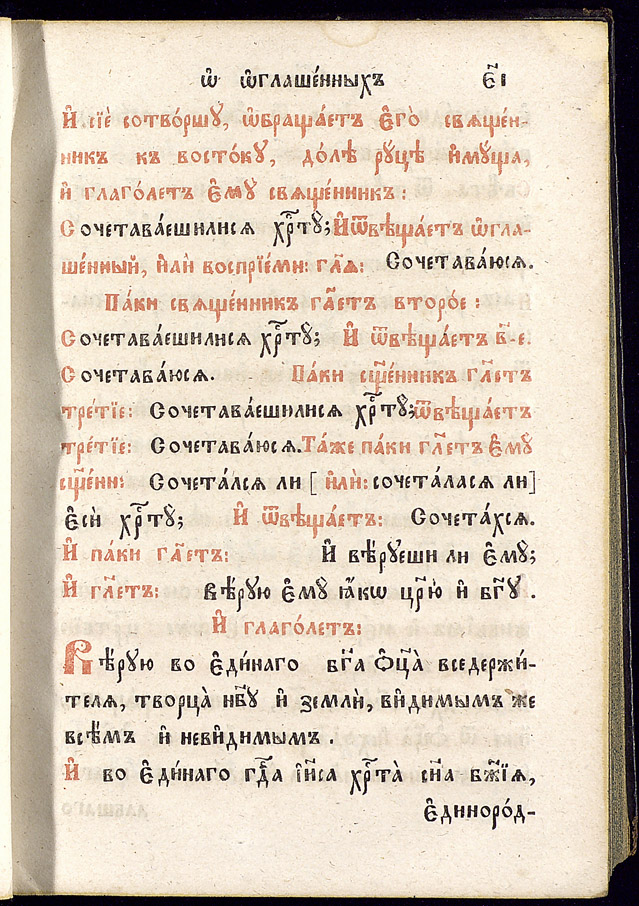 Ѡ҆ ѡ҆глаше́нныхъ є҃і
И҆ сїѐ сотво́ршꙋ, ѡ҆браща́етъ є҆го̀ свѧще́н-
никъ къ восто́кꙋ, до́лѣ рꙋ́цѣ и҆мꙋ́ща,
и҆ глаго́летъ є҆мꙋ̀ свѧще́нникъ:
Сочетава́ешилисѧ хрⷭ҇тꙋ̀; И҆ ѿвѣща́етъ ѡ҆гла-
ше́нный, и҆лѝ воспрїе́мн: гл҃ѧ: Сочетава́юсѧ.
Па́ки свѧще́нникъ гл҃етъ второ́е:
Сочетава́ешилисѧ хрⷭ҇тꙋ̀; И҆ ѿвѣща́етъ в҃-е.
Сочетава́юсѧ. Па́ки сщ҃е́нникъ гл҃етъ
тре́тїе: Сочетава́ешилисѧ хрⷭ҇тꙋ̀; ѿвѣща́етъ
тре́тїе: Сочетава́юсѧ. Та́же па́ки гл҃етъ є҆мꙋ̀
сщ҃е́нн: Сочета́лсѧ ли [ и҆лѝ: сочета́ласѧ ли]
є҆сѝ хрⷭ҇тꙋ̀; И҆ ѿвѣща́етъ: Сочета́хсѧ.
И҆ па́ки гл҃етъ: И҆ вѣ́рꙋеши ли є҆мꙋ̀;
И҆ гл҃етъ: вѣ́рꙋю є҆мꙋ̀ ꙗ҆́кѡ цр҃ю̀ и҆ бг҃ꙋ.
И҆ глаго́летъ:
Вѣ́рꙋю во є҆ди́наго бг҃а ѻ҆ц҃а̀ вседержи́-
телѧ, творца̀ нб҃ꙋ̀ и҆ землѝ, ви́димымъ же
всѣ̑мъ и҆ неви́димымъ.
И҆ во є҆ди́наго гдⷭ҇а і҆и҃са хрⷭ҇та̀ сн҃а бж҃їѧ,
є҆диноро́д-